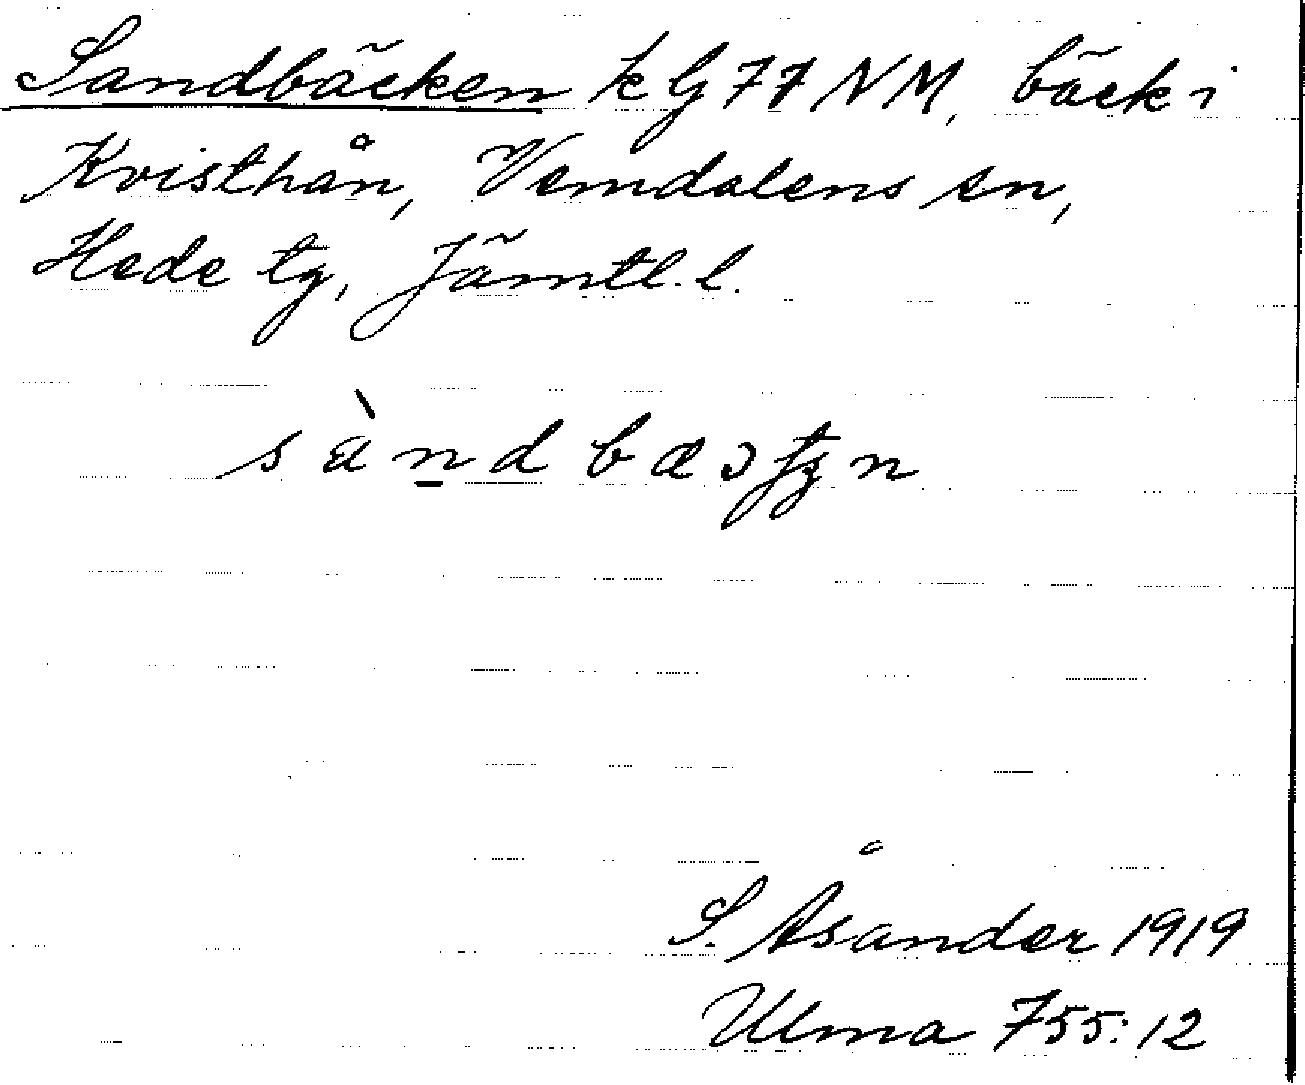 Sandbäcken k G 77 NM, bäck i
Kvisthån, Vemdalens sn,
Hede tg, Jämtl. l.
S. Åsander 1919
Ulma 755:12